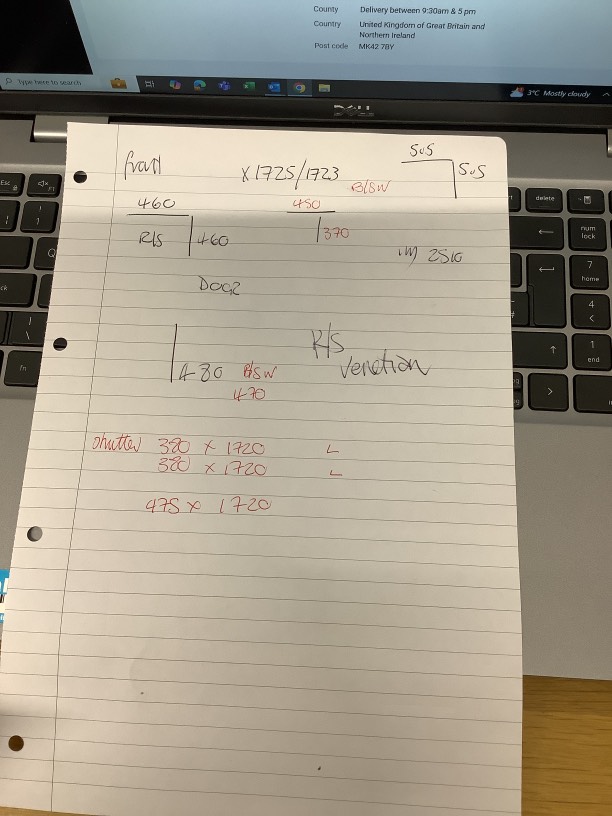 County Delivery between 9:30am & 5 pm
Country United Kingdom of Great Britain and
Northern Ireland
Post code MK42 7BY
Type here to search
3°C Mostly cloudy
DELL
Esc
delete
num
lock
7
home
4
1
end
fn
front X1725/1723 B/SW
505
505
460
R/S 460
450
370
2510
480 B/SW
470
R/S
shutter 320 X 1720 L
320 X 1720 L
475 X 1720